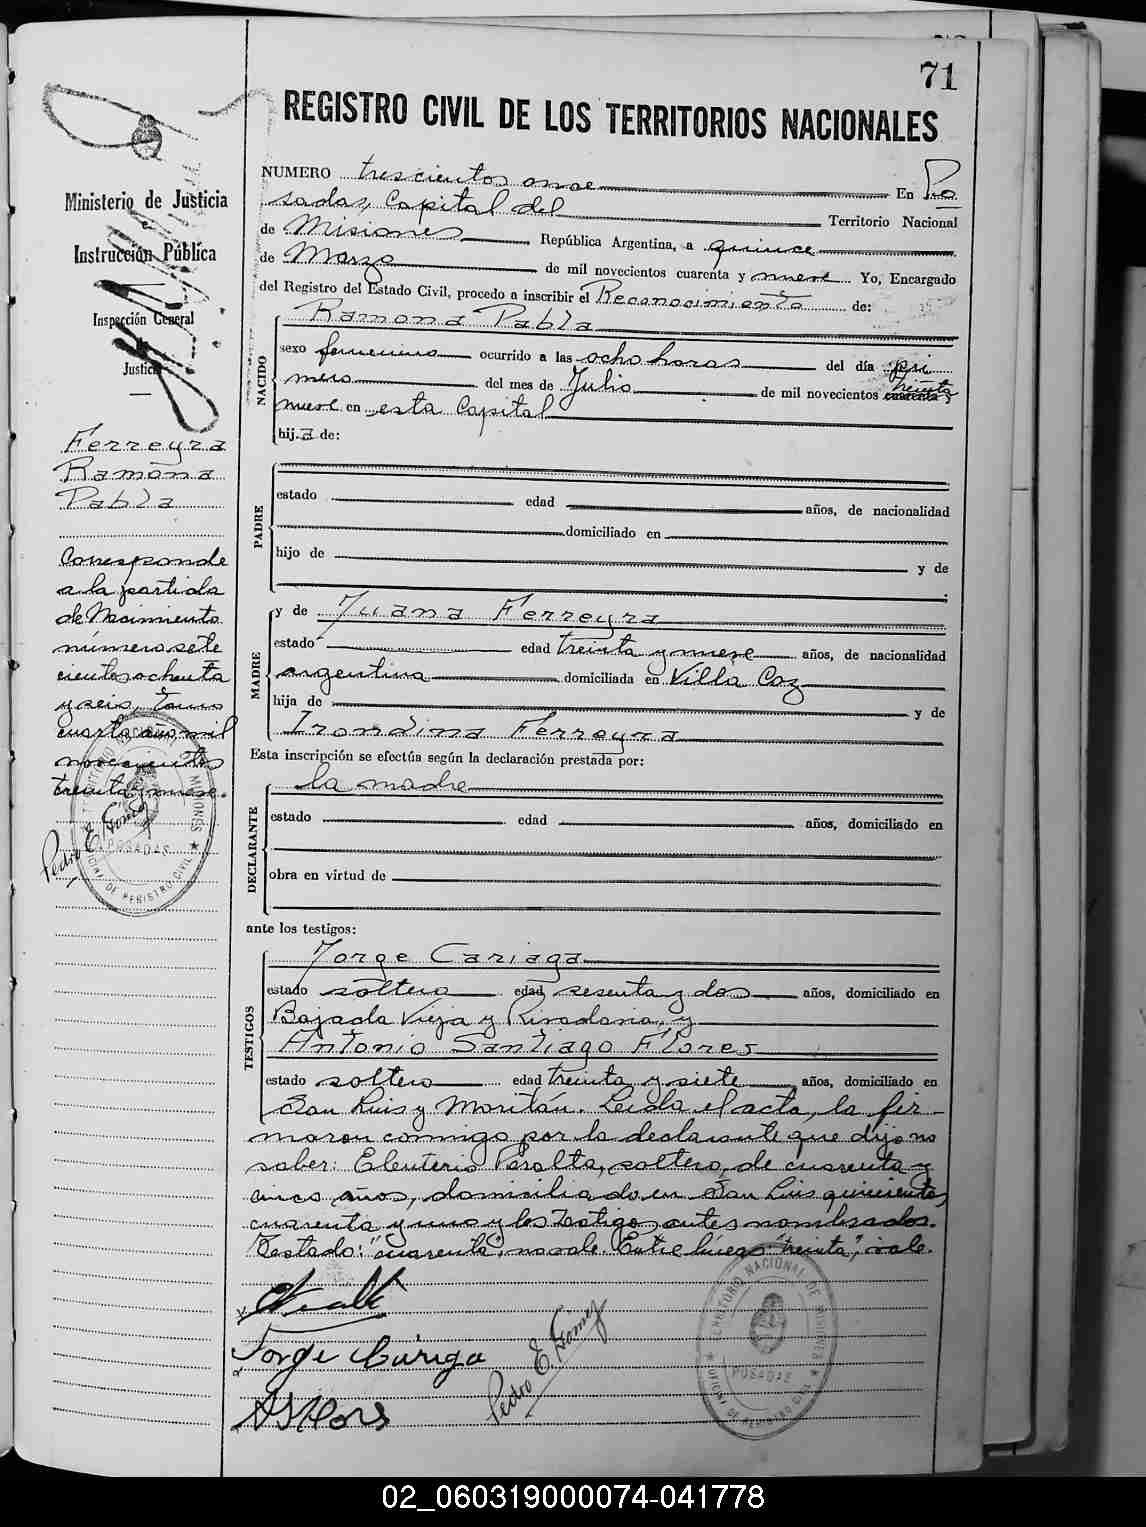 71
REGISTRO CIVIL DE LOS TERRITORIOS NACIONALES
Ministerio de Justicia
e
Instrucción Pública
Inspección General
de
Justicia
Ferreyra
Ramona
Pabla
Corresponde
a la partida
de Nacimiento
número sete
cientos ochenta
y seis, tomo
cuarto año mil
novecientos
treinta y nueve.
Pedro E. Gómez
NUMERO trescientos once En Po
sadas, Capital del Territorio Nacional
de Misiones República Argentina, a quince
de Marzo de mil novecientos cuarenta y nueve Yo, Encargado
del Registro del Estado Civil, procedo a inscribir el Reconocimiento de:
NACIDO
Ramona Pabla
sexo femenino ocurrido a las ocho horas del día pri
mero del mes de Julio de mil novecientos cuarenta treinta y
nueve en esta Capital
hija de:
PADRE
estado edad años, de nacionalidad
domiciliado en
hijo de y de
MADRE
y de Juana Ferreyra
estado edad treinta y nueve años, de nacionalidad
argentina domiciliada en Villa Coz
hija de y de
Irondina Ferreyra
Esta inscripción se efectúa según la declaración prestada por:
DECLARANTE
la madre
estado edad años, domiciliado en
obra en virtud de
ante los testigos:
TESTIGOS
Jorge Cariaga
estado soltero edad sesenta y dos años, domiciliado en
Bajada Vieja y Rivadavia, y
Antonio Santiago Flores
estado soltero edad treinta y siete años, domiciliado en
San Luis y Moritán. Leida el acta, la fir-
maron conmigo por la declarante que dijo no
saber: Eleuterio Peralta, soltero, de cuarenta y
cinco años, domiciliado en San Luis quinientos
cuarenta y uno y los testigos antes nombrados.
Testado: "cuarenta", no vale. Entre líneas: "treinta", vale.
Jorge Cariaga
ASFlores
Pedro E. Gómez
TERRITORIO NACIONAL DE MISIONES
POSADAS
OFICINA DE REGISTRO CIVIL
02_060319000074-041778